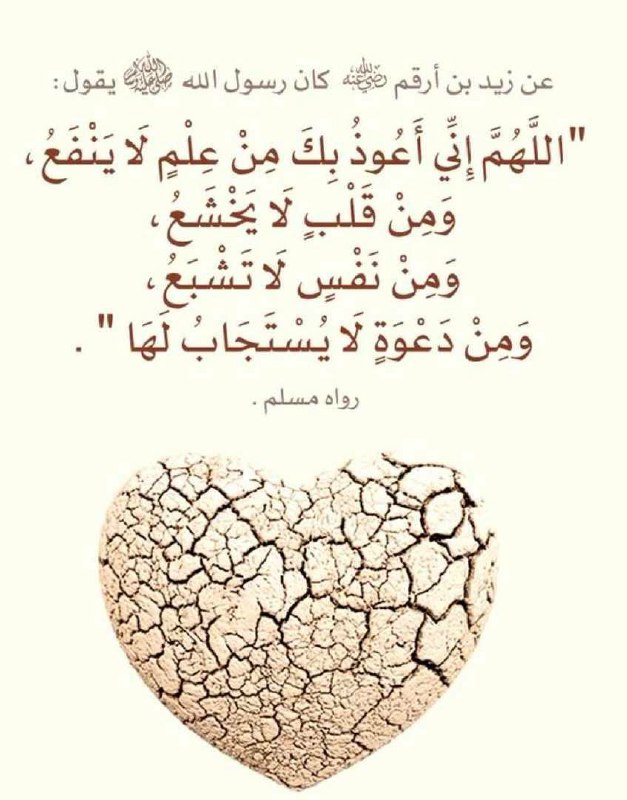 عن زيد بن أرقم رضي الله عنه كان رسول الله ﷺ يقول:
"اللَّهُمَّ إِنِّي أَعُوذُ بِكَ مِنْ عِلْمٍ لَا يَنْفَعُ،
وَمِنْ قَلْبٍ لَا يَخْشَعُ،
وَمِنْ نَفْسٍ لَا تَشْبَعُ،
وَمِنْ دَعْوَةٍ لَا يُسْتَجَابُ لَهَا " .
رواه مسلم .